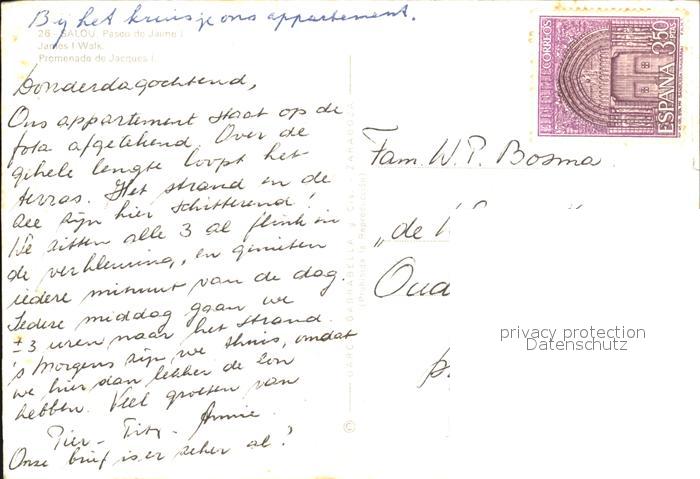 Bij het kruisje ons appartement.
26 - SALOU. Paseo de Jaime I
James I Walk.
Promenade de Jacques I
Donderdagochtend,
Ons appartement staat op de
foto afgetekend. Over de
gehele lengte loopt het
terras. Het strand en de
zee zijn hier schitterend!
We zitten alle 3 al flink in
de verkleuring, en genieten
iedere minuut van de dag.
Iedere middag gaan we
± 3 uren naar het strand.
's morgens zijn we thuis, omdat
we hier dan lekker de zon
hebben. Veel groeten van
Annie.
Onze brief is er zeker al?
GARCIA GARRABELLA y Cia. ZARAGOZA
(Prohibida la Reproducción)
©
CORREOS
ESPAÑA 3,50 PTAS
Fam. W. P. Bosma
„de
Oud
privacy protection
Datenschutz